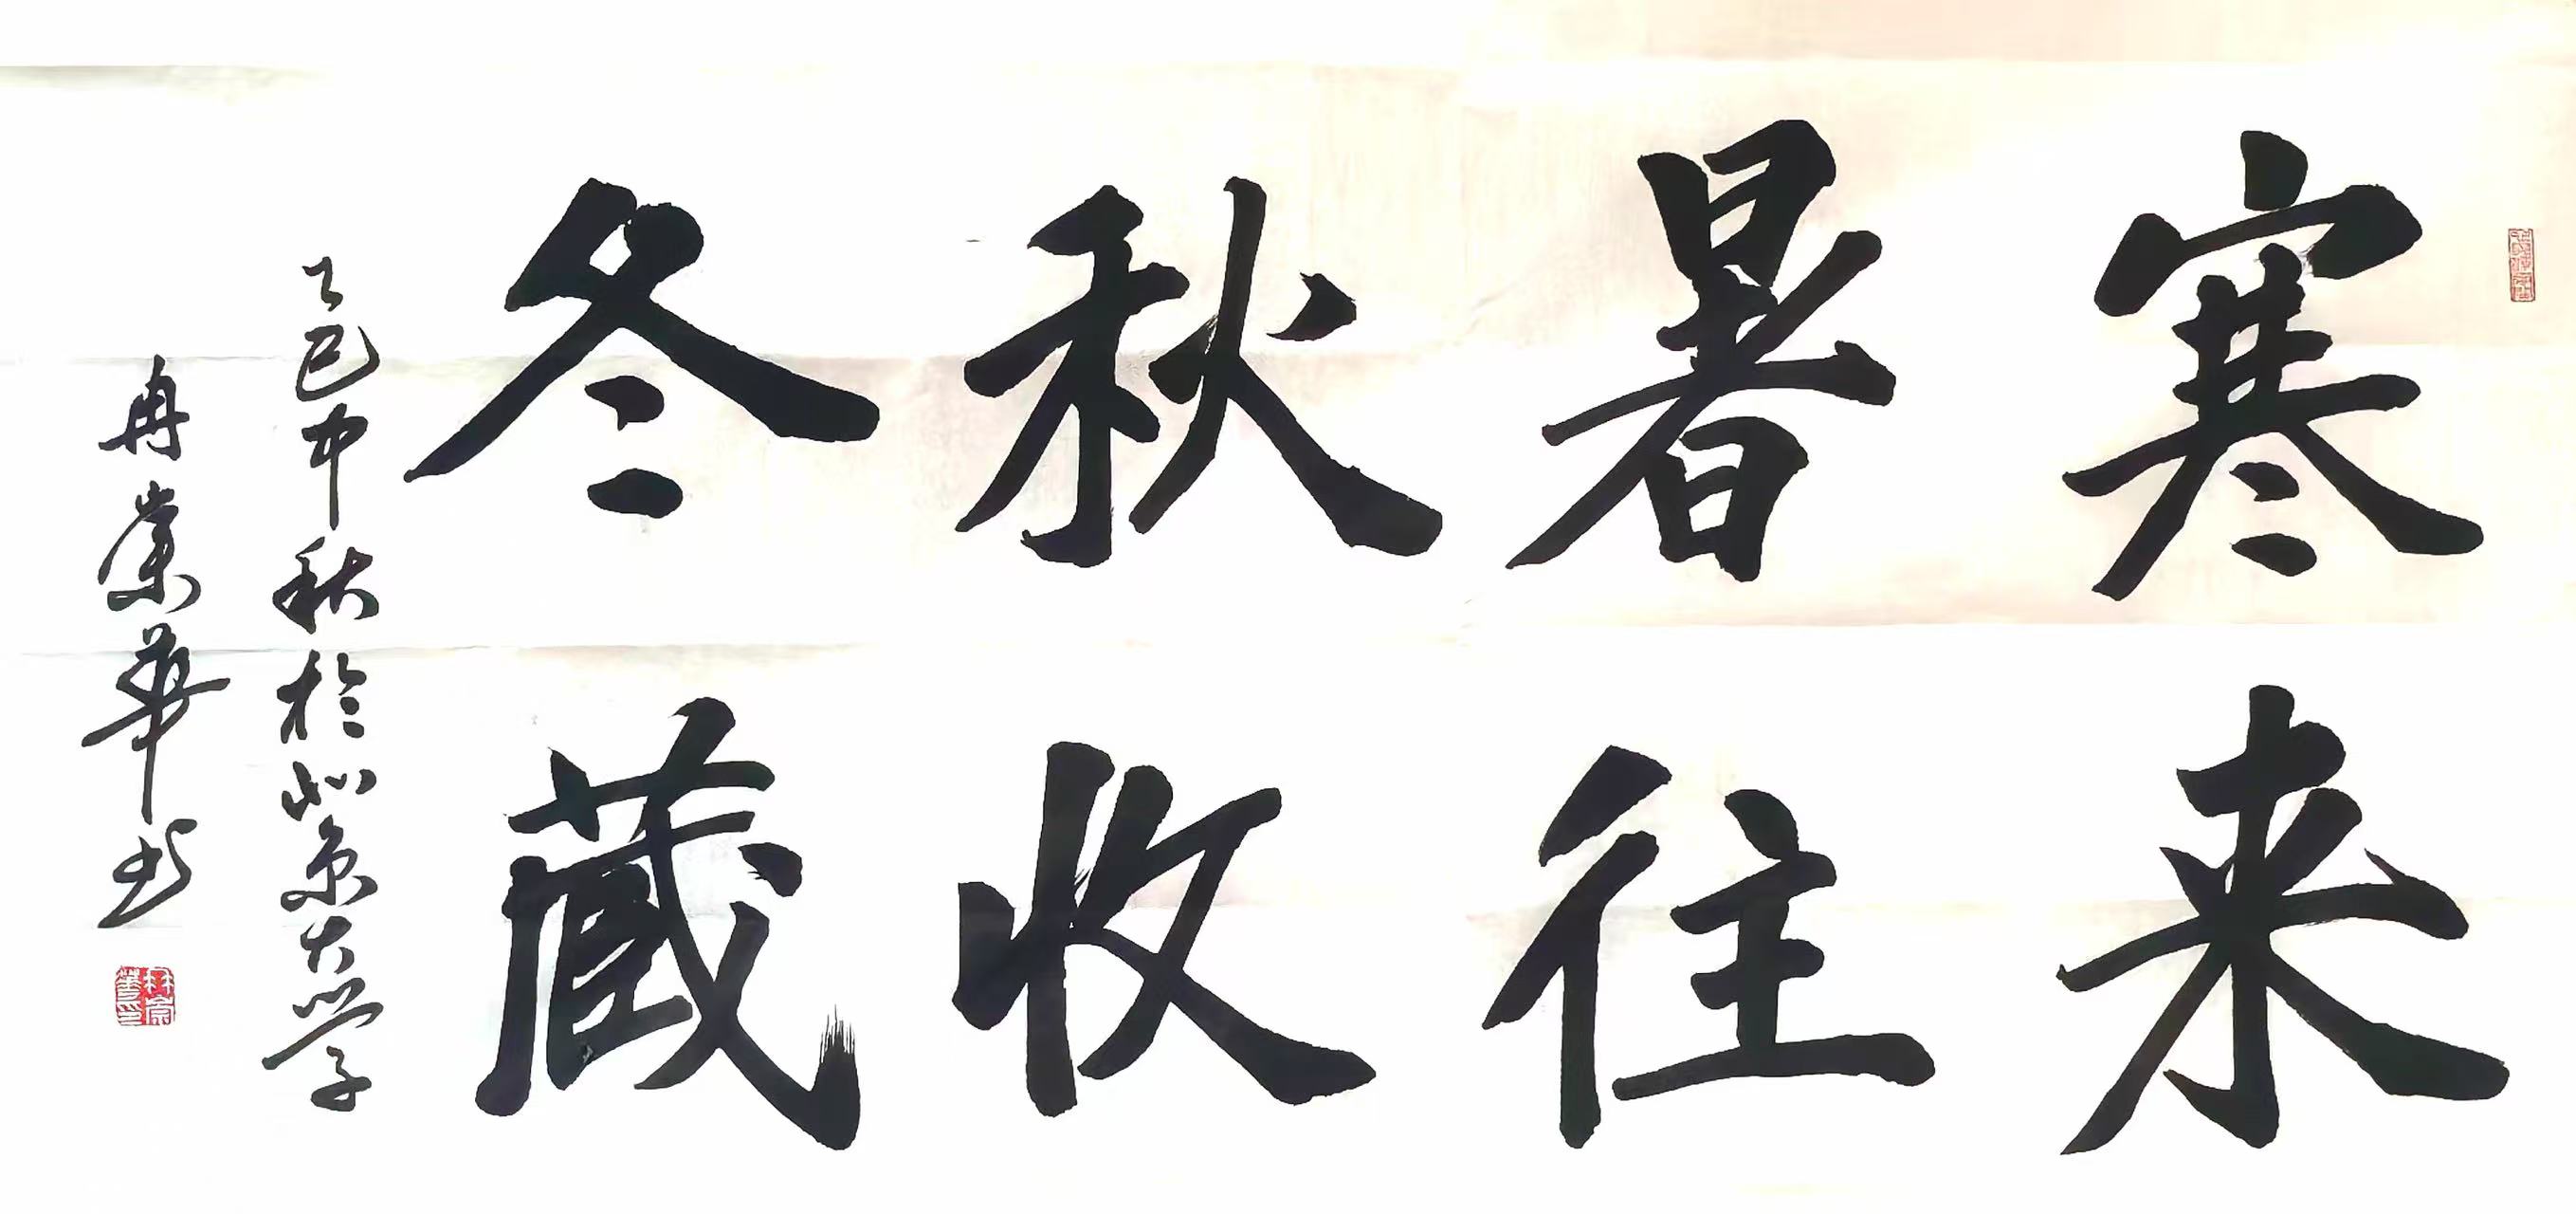 寒来
暑往
秋收
冬藏
乙巳中秋於北京大学
冉崇華书